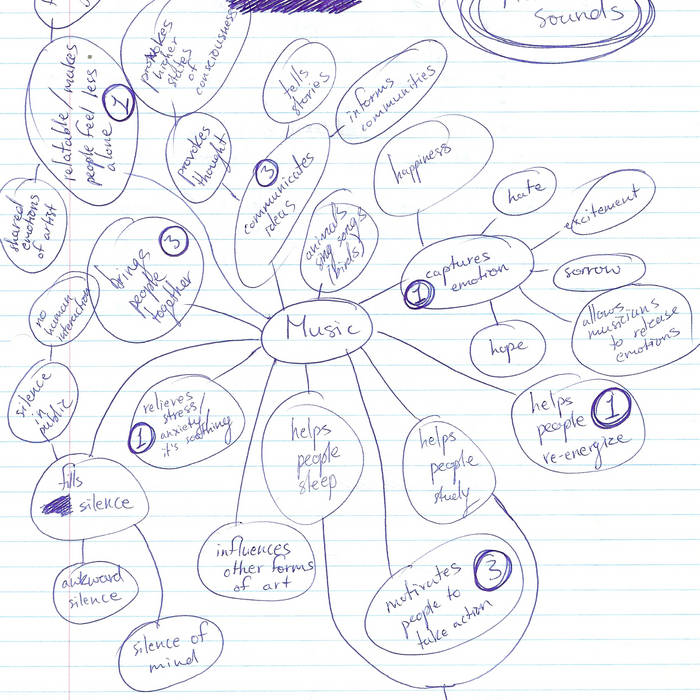 Sounds
provokes
higher
states
of
consciousness
relatable/makes
people feel less
alone
1
tells
stories
informs
communities
provokes
thought
3
communicates
ideas
happiness
hate
excitement
shared
emotions
of artist
3
brings
people
together
animals
sing songs
(birds)
captures
emotion
1
sorrow
allows
musicians
to release
emotions
no
human
interaction
Music
hope
silence
in
public
relieves
stress/
anxiety/
it's soothing
1
helps
people
sleep
helps
people
study
helps
people
re-energize
1
fills
silence
influences
other forms
of art
motivates
people to
take action
3
awkward
silence
silence of
mind